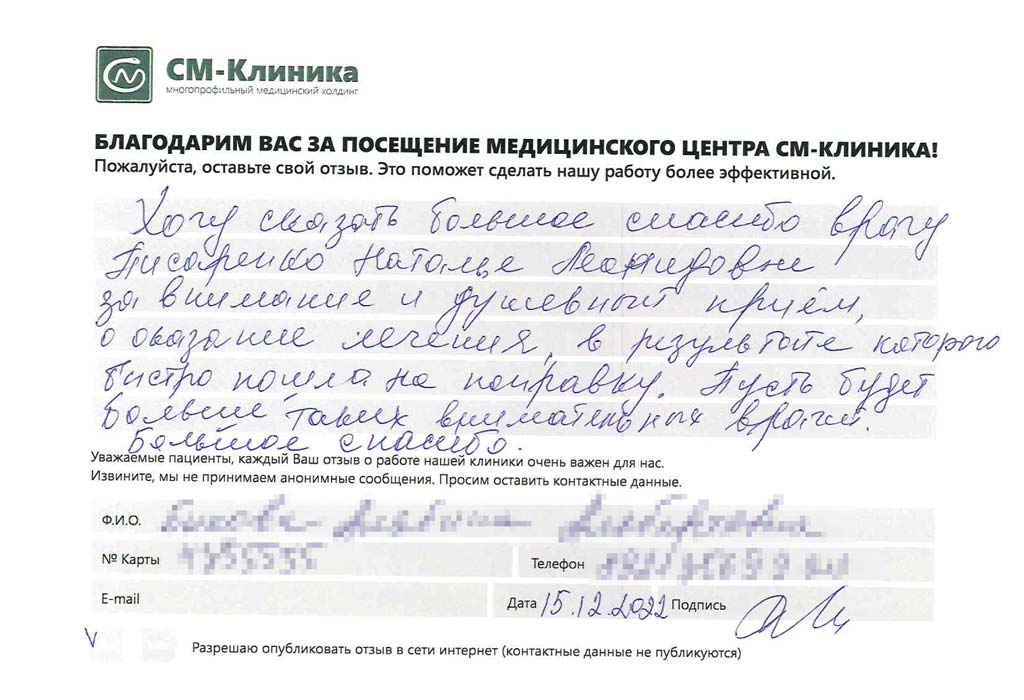 СМ-Клиника
многопрофильный медицинский холдинг
БЛАГОДАРИМ ВАС ЗА ПОСЕЩЕНИЕ МЕДИЦИНСКОГО ЦЕНТРА СМ-КЛИНИКА!
Пожалуйста, оставьте свой отзыв. Это поможет сделать нашу работу более эффективной.
Хочу сказать большое спасибо врачу
Писаренко Наталье Леонидовне
за внимание и душевный приём,
о оказание лечения, в результате которого
быстро пошла на поправку. Пусть будет
больше таких внимательных врачей.
Большое спасибо.
Уважаемые пациенты, каждый Ваш отзыв о работе нашей клиники очень важен для нас.
Извините, мы не принимаем анонимные сообщения. Просим оставить контактные данные.
Ф.И.О.
№ Карты Телефон
E-mail Дата 15.12.2022 Подпись
V Разрешаю опубликовать отзыв в сети интернет (контактные данные не публикуются)